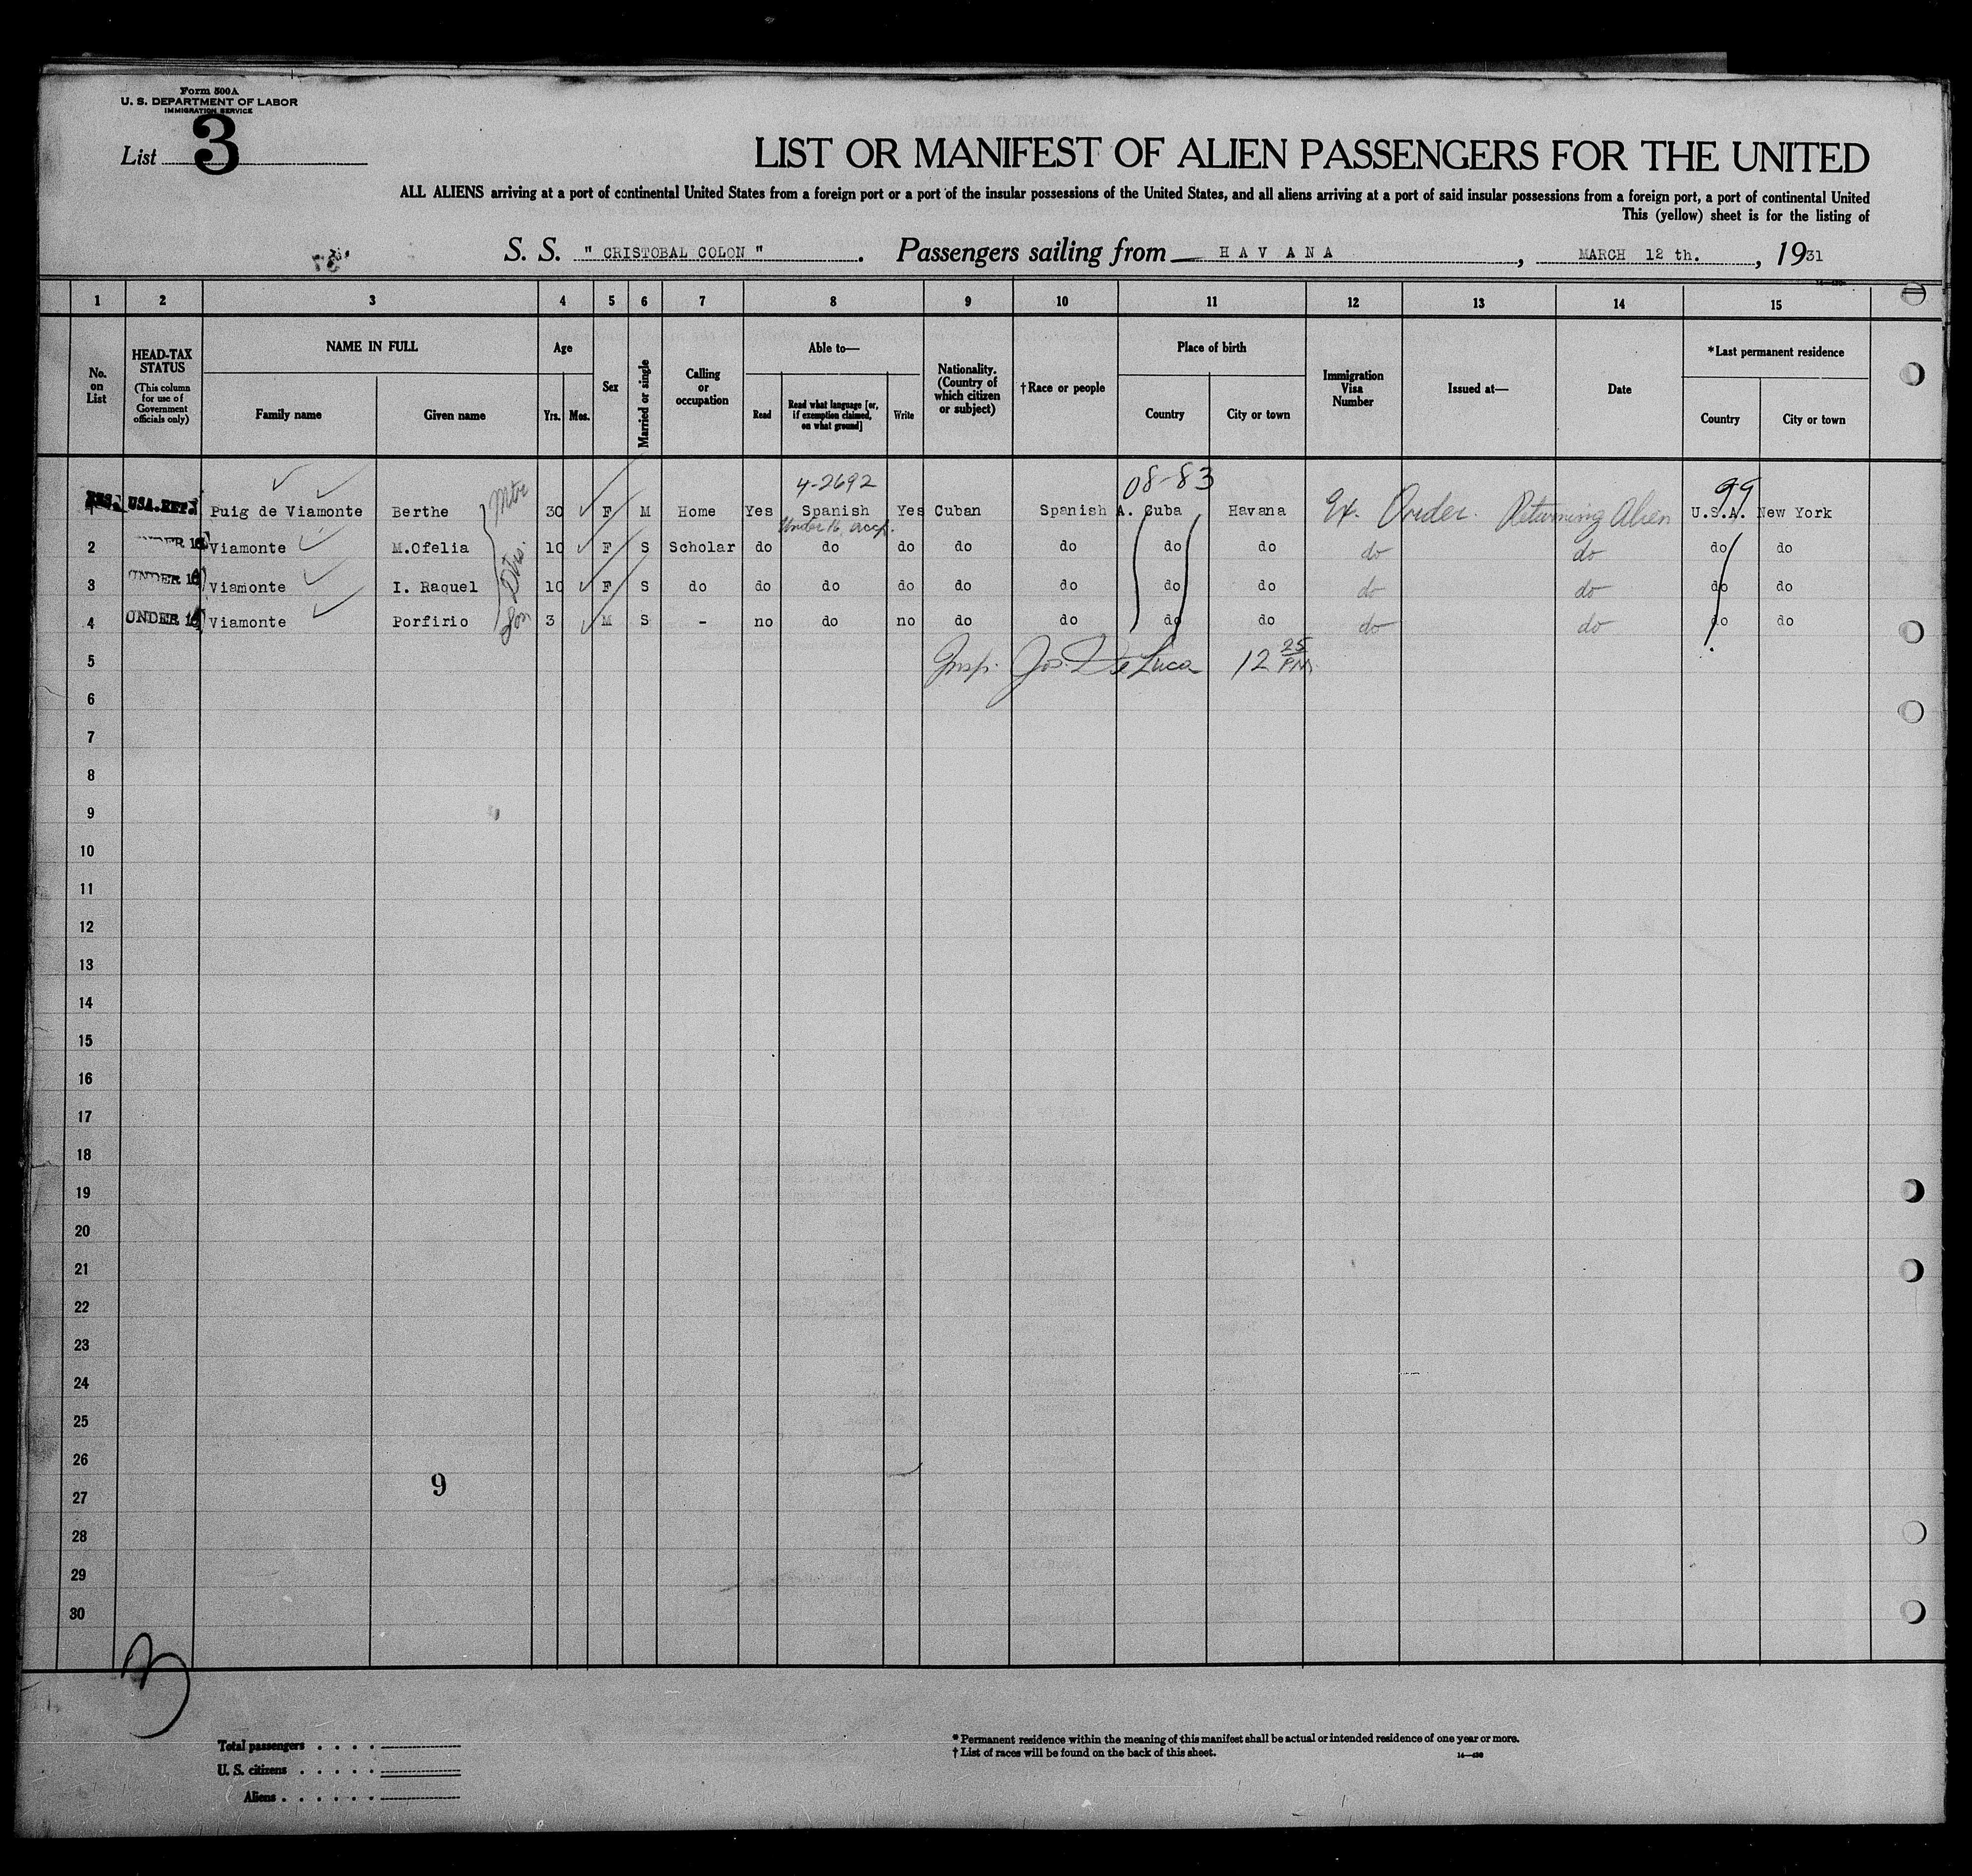 Form 500A
U. S. DEPARTMENT OF LABOR
IMMIGRATION SERVICE
List 3
LIST OR MANIFEST OF ALIEN PASSENGERS FOR THE UNITED
ALL ALIENS arriving at a port of continental United States from a foreign port or a port of the insular possessions of the United States, and all aliens arriving at a port of said insular possessions from a foreign port, a port of continental United
This (yellow) sheet is for the listing of
S. S. " CRISTOBAL COLON " . Passengers sailing from HAVANA , MARCH 12 th. , 1931
1 2 3 4 5 6 7 8 9 10 11 12 13 14 15
No. on List
HEAD-TAX STATUS (This column for use of Government officials only)
NAME IN FULL
Family name Given name
Age
Yrs. Mos.
Sex
Married or single
Calling or occupation
Able to—
Read Read what language [or, if exemption claimed, on what ground] Write
Nationality. (Country of which citizen or subject)
†Race or people
Place of birth
Country City or town
Immigration Visa Number
Issued at—
Date
*Last permanent residence
Country City or town
4-2692 08-83 99
1 RES. USA. RET. Puig de Viamonte Berthe Mtr 30 F M Home Yes Spanish Yes Cuban Spanish A. Cuba Havana Ex. Order. Returning Alien U.S.A. New York
Under 16, accp.
2 UNDER 16 Viamonte M.Ofelia Dtrs. 10 F S Scholar do do do do do do do do do do do
3 UNDER 16 Viamonte I. Raquel 10 F S do do do do do do do do do do do do
4 UNDER 16 Viamonte Porfirio Son 3 M S - no do no do do do do do do do do
5 Insp. Jos. De Luca 12 25 P.M.
6
7
8
9
10
11
12
13
14
15
16
17
18
19
20
21
22
23
24
25
26
9
27
28
29
30
Total passengers . . . .
U. S. citizens . . . . .
Aliens . . . . . .
* Permanent residence within the meaning of this manifest shall be actual or intended residence of one year or more.
† List of races will be found on the back of this sheet.